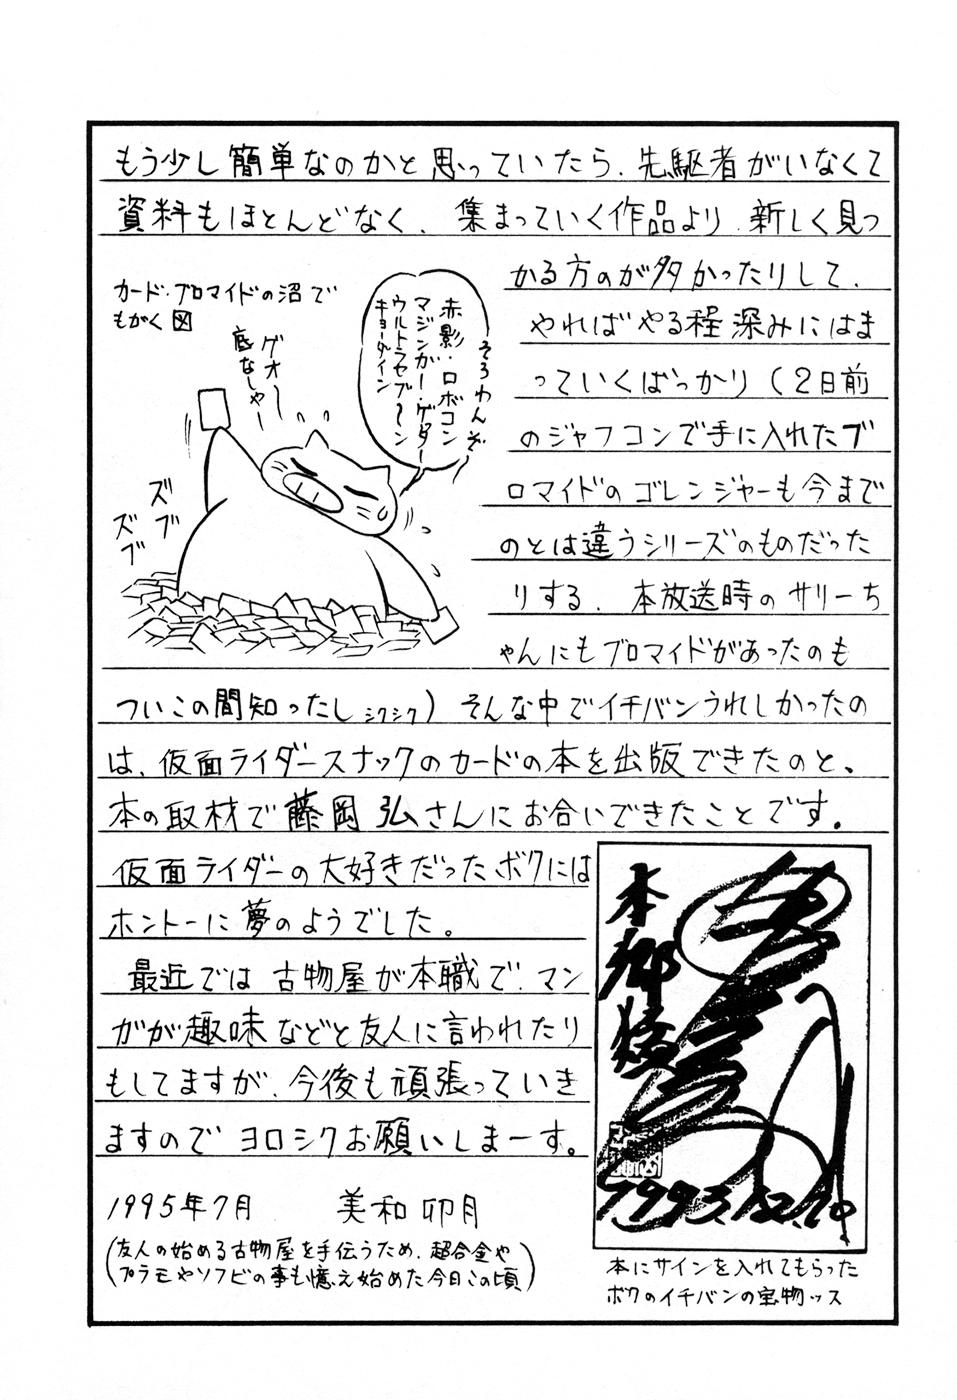 もう少し簡単なのかと思っていたら、先駆者がいなくて
資料もほとんどなく、集まっていく作品より、新しく見つ
かる方のが多かったりして、
やればやる程深みにはま
っていくばっかり(2日前
のジャフコンで手に入れたブ
ロマイドのゴレンジャーも今まで
のとは違うシリーズのものだった
りする、本放送時のサリーち
ゃんにもブロマイドがあったのも
ついこの間知ったし シクシク)そんな中でイチバンうれしかったの
は、仮面ライダースナックのカードの本を出版できたのと、
本の取材で藤岡弘さんにお合いできたことです。
仮面ライダーの大好きだったボクには
ホントーに夢のようでした。
最近では古物屋が本職で、マン
ガが趣味などと友人に言われたり
もしてますが、今後も頑張っていき
ますのでヨロシクお願いしまーす。
1995年7月 美和卯月
(友人の始める古物屋を手伝うため、超合金や
プラモやソフビの事も憶え始めた今日この頃)
カード・ブロマイドの沼で
もがく図
ゲオ〜
底なしや〜
そろわんぞ〜
赤影・ロボコン
マジンガー・ゲッター
ウルトラセブ〜ン
キョーダイン
ズブ
ズブ
本郷猛
1993.12.10
本にサインを入れてもらった
ボクのイチバンの宝物ッス